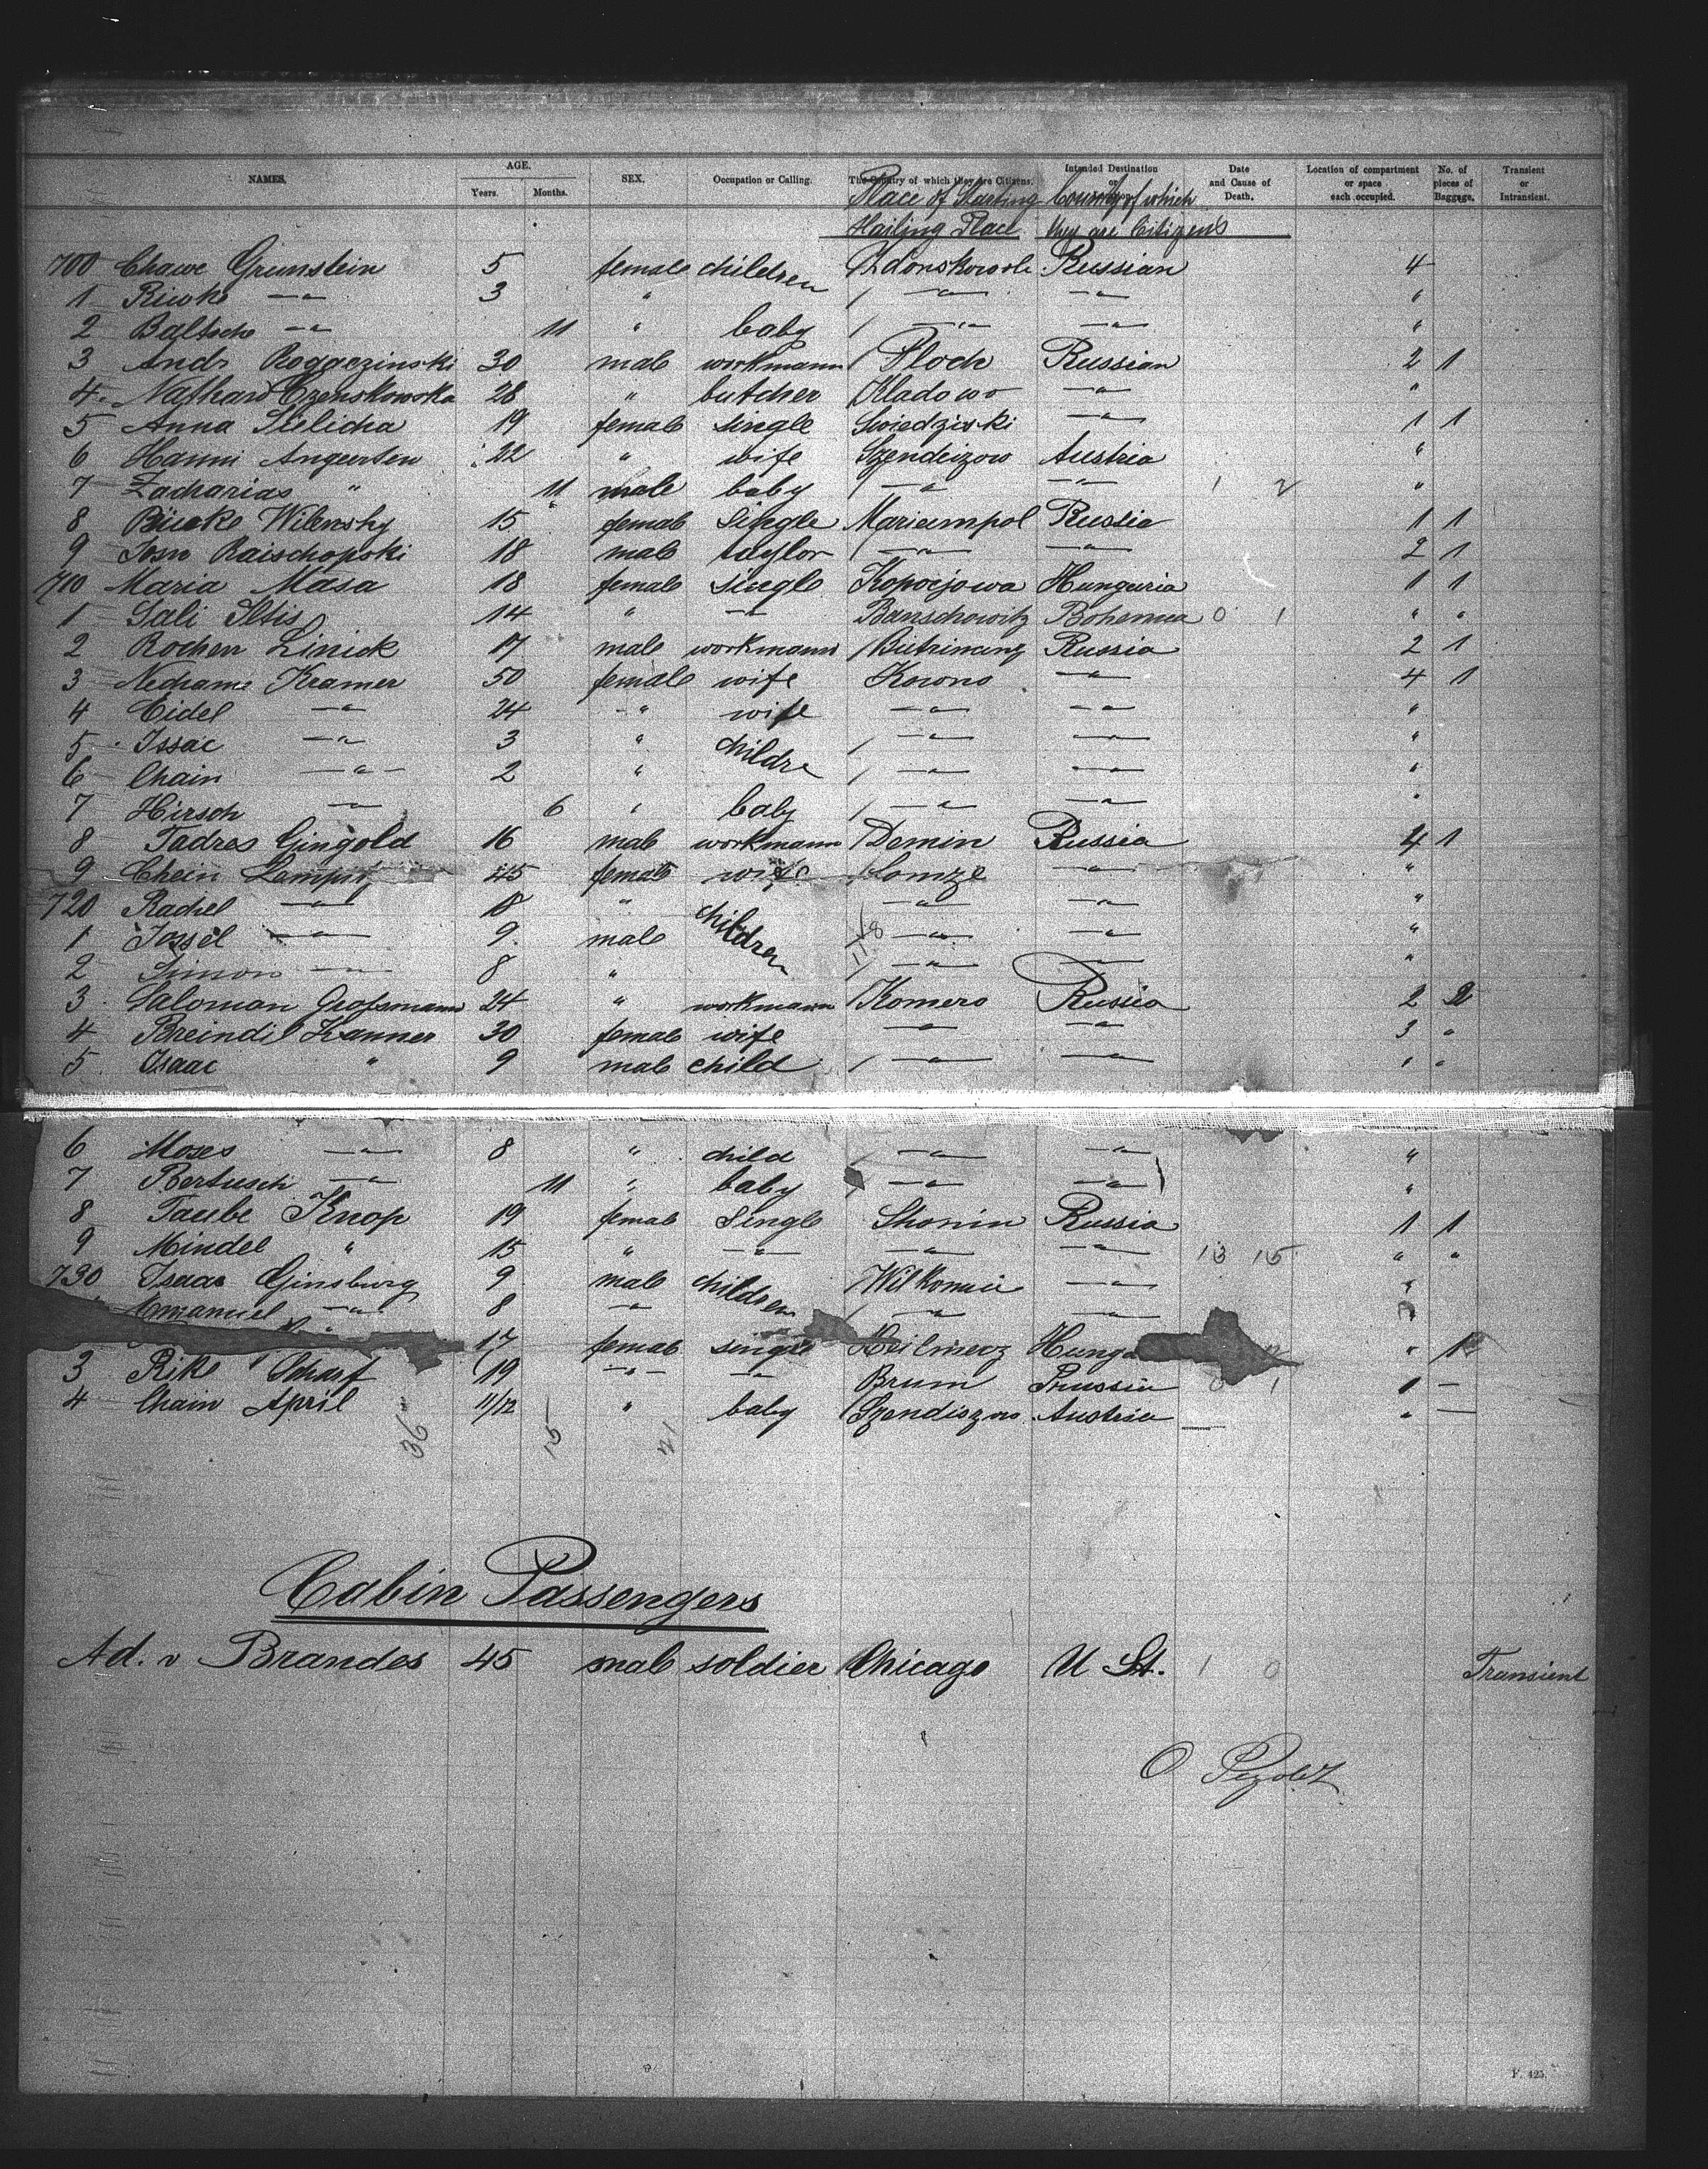 NAMES. AGE. SEX. Occupation or Calling. The Country of which they are Citizens. Intended Destination or Date and Cause of Death. Location of compartment or space each occupied. No. of pieces of Baggage. Transient or Intransient.
Years. Months.
Place of Starting Country of which
Hailing Place they are Citizens
700 Chawe Grunstein 5 female children Russian 4
1 Riwke —"— 3 " —"— —"— "
2 Baltsche —"— 11 " baby —"— —"— "
3 Andr Roggezinski 30 male workmann Plock Russian 2 1
4 Nathan Czenskowska 28 " butcher Kladowo —"— "
5 Anna Sielicha 19 female single Swiedziski —"— 1 1
6 Hanni Angersten 22 " wife Szendeizow Austria "
7 Zacharias " 11 male baby —"— —"— 1 2 "
8 Wilensky 15 female Single Mariampol Russia 1 1
9 Raischopski 18 male taylor —"— —"— 2 1
710 Maria Masa 18 female single Kopocjowa Hunguria 1 1
1 Sali Iltis 14 " —"— Banschowitz Bohemia 0 1 " "
2 Rochen Linick 17 male workmann Russia 2 1
3 Nechame Kramer 50 female wife Kowno —"— 4 1
4 Eidel —"— 24 —"— wife —"— —"— "
5 Issac —"— 3 " childre —"— —"— "
6 Chain —"— 2 " —"— —"— "
7 Hirsch —"— 6 " baby —"— —"— "
8 Tadres Gingold 16 male workmann Demin Russia 4 1
9 Chein 45 female wife Lomze —"— "
720 Rachel —"— 18 " children —"— —"— "
1 Jossel —"— 9 male —"— —"— "
2 Simon —"— 8 " —"— —"— "
3 Saloman Grossmann 24 " workmann Komero Russia 2 2
4 Breindil Kanner 30 female wife —"— —"— 3 "
5 Isaac " 9 male child —"— —"— " "
6 Moses —"— 8 " child —"— —"— "
7 Bertusch —"— 11 " baby —"— —"— "
8 Taube Knop 19 female Single Shonin Russia 1 1
9 Mindel " 15 " —"— —"— —"— 13 15 " "
730 Isaac Ginsburg 9 male children Wilkomir —"— "
Emanuel —"— 8 —"— —"— —"— "
17 female single Hunga " 1
3 Rike Scharf 19 —"— —"— Brum Prussia 0 1 1 —
4 Chain April 11/12 " baby Szendiszow Austria " —
36 15 21
Cabin Passengers
Ad. v Brandes 45 male soldier Chicago U St. 1 0 Transient
O Pezoldt
F. 425.